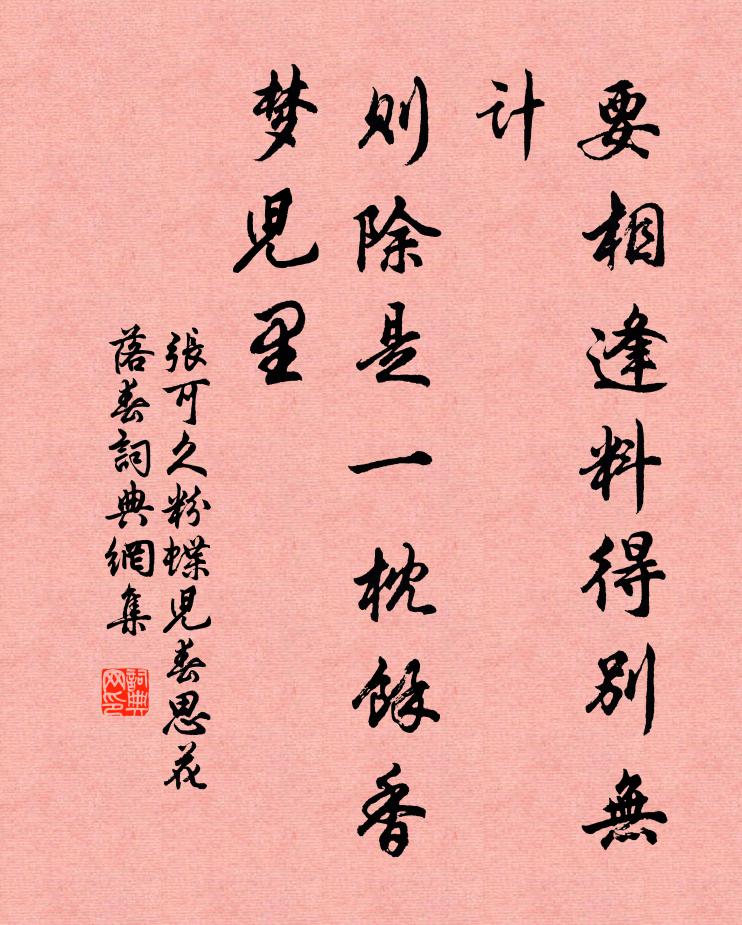 要相逢料得別無
计
则除是一枕餘香
梦児里
張可久粉蝶児春思花
落春詞典網集
詞典
网印